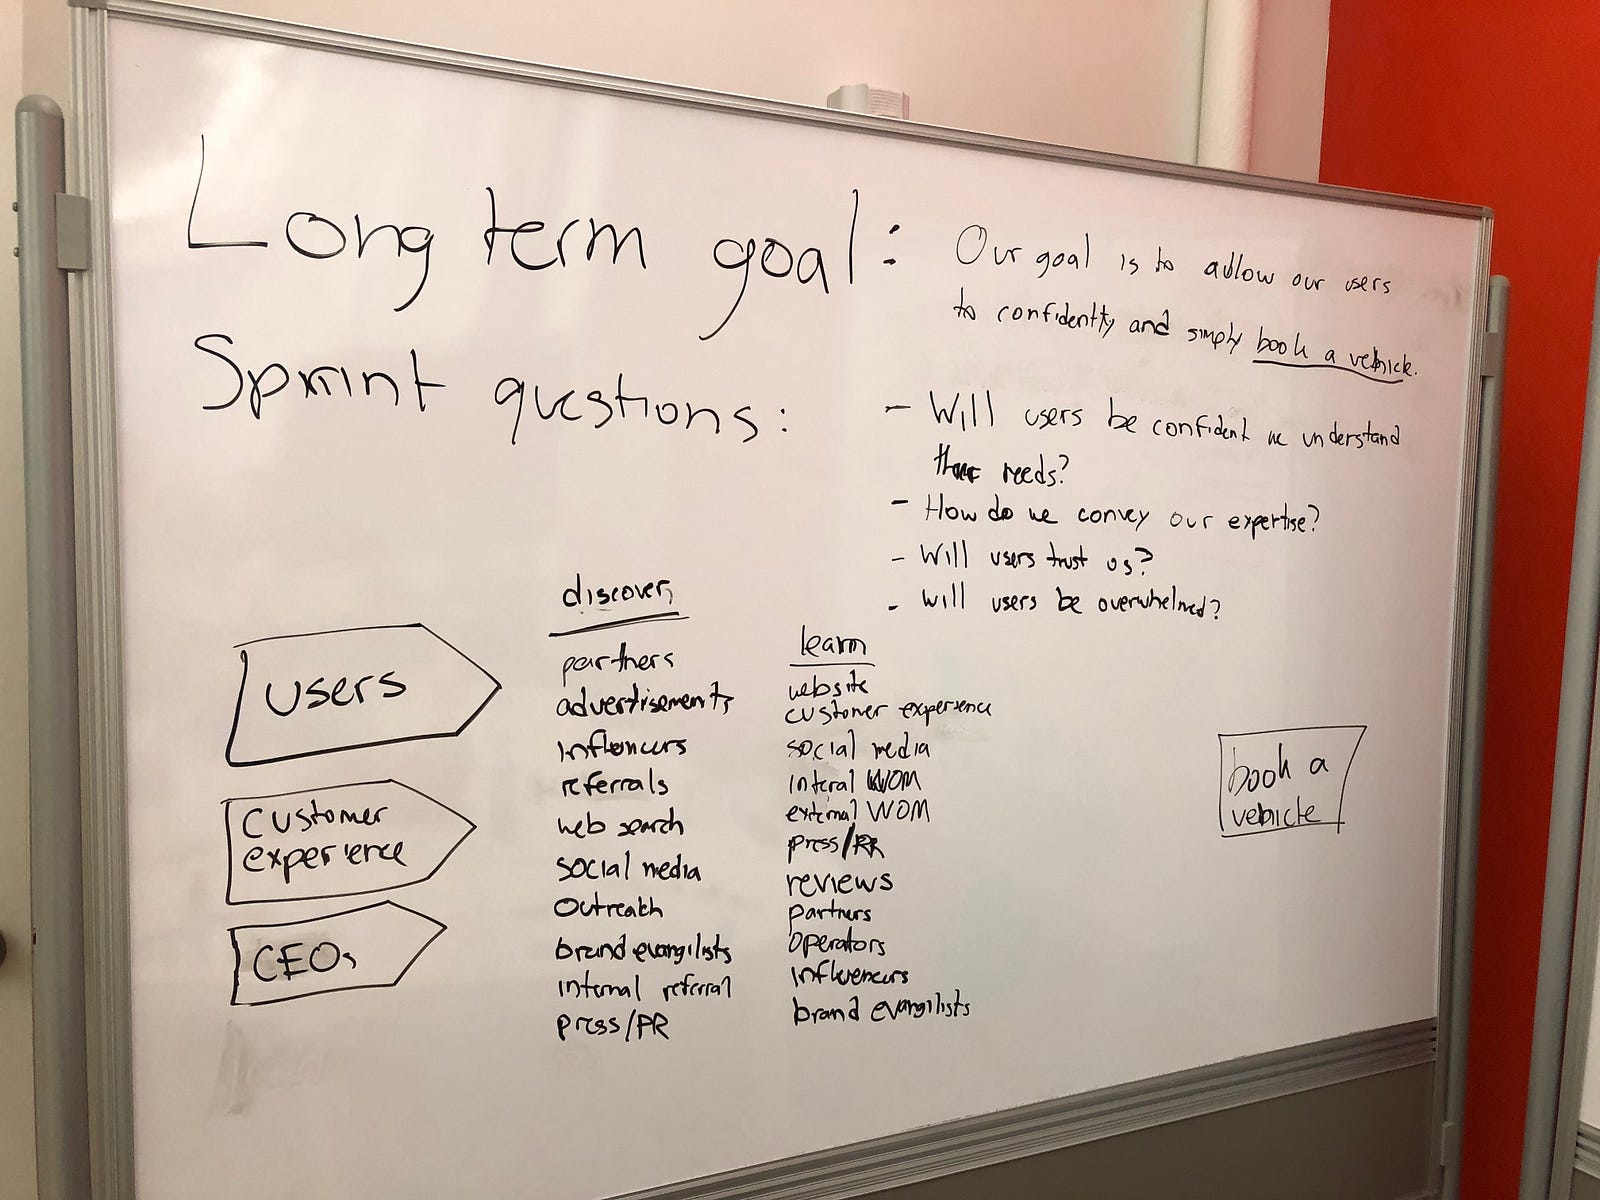 Long term goal:
Our goal is to allow our users
to confidently and simply book a vehicle.
Sprint questions:
- Will users be confident we understand
their needs?
- How do we convey our expertise?
- Will users trust us?
- Will users be overwhelmed?
users
customer
experience
CEOs
discover
partners
advertisements
influencers
referrals
web search
social media
outreach
brand evangilists
internal referral
press/PR
learn
website
customer experience
social media
interal WOM
external WOM
press/PR
reviews
partners
operators
influencers
brand evangilists
book a
vehicle